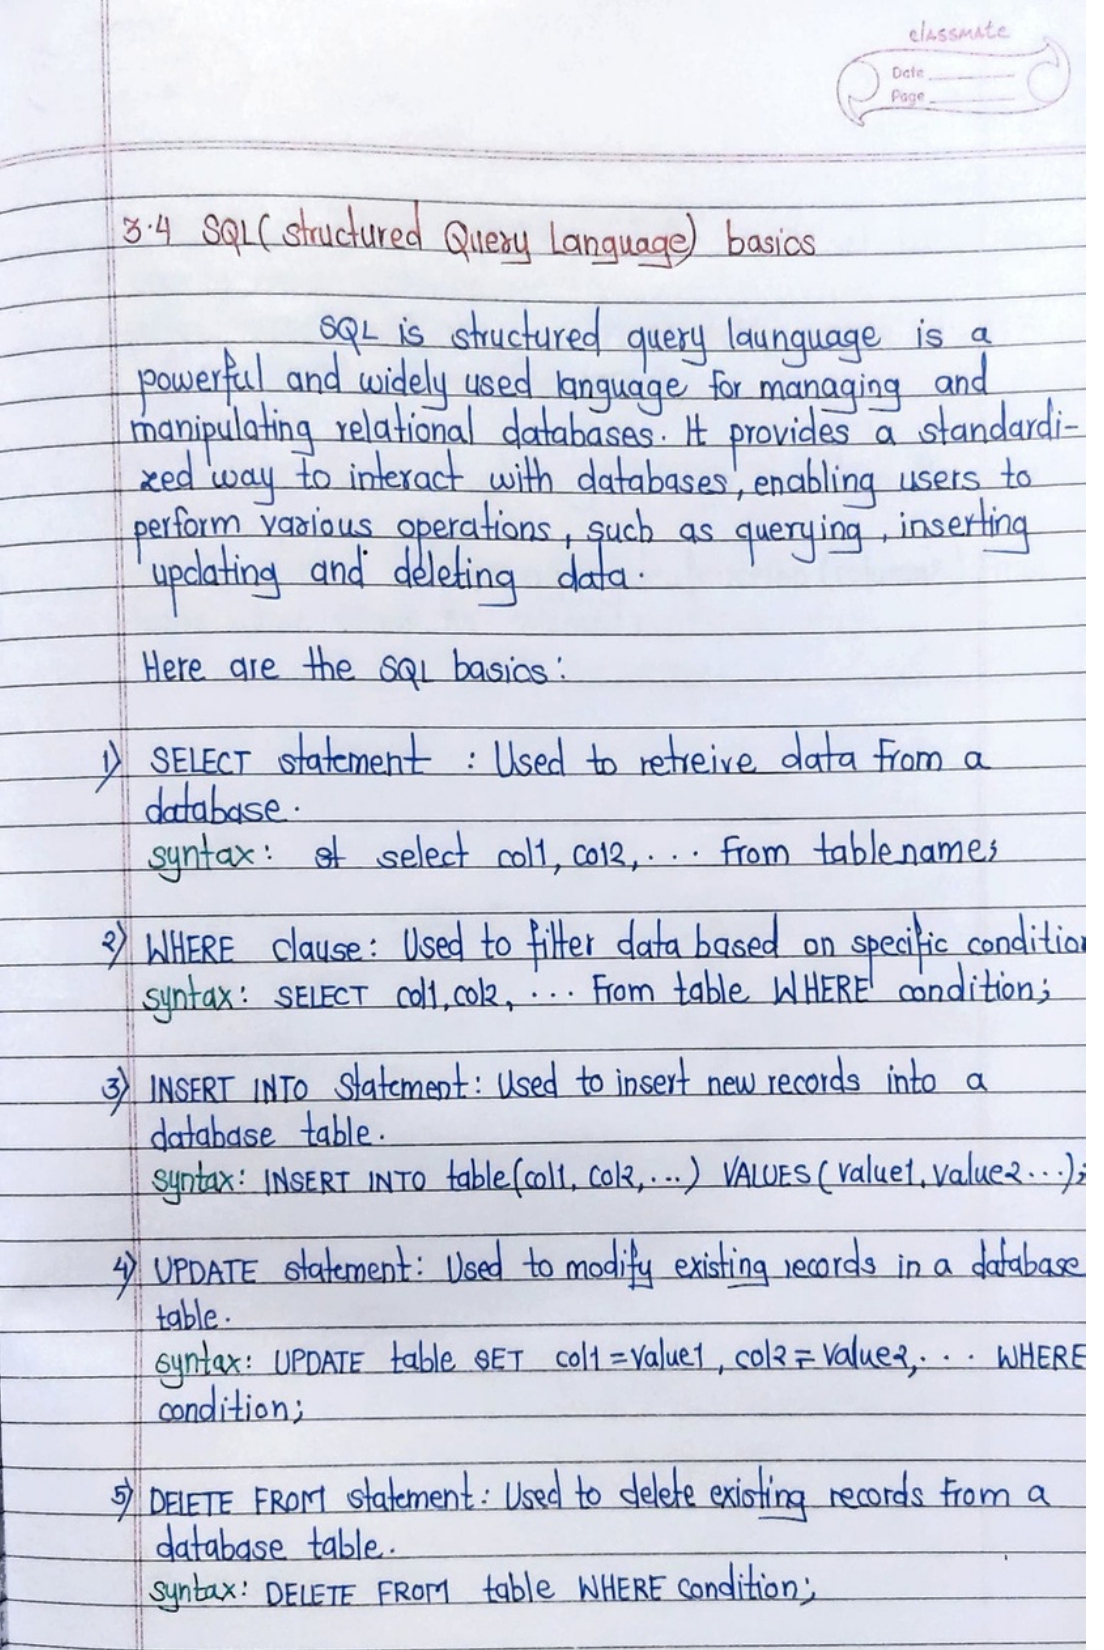 classmate
Date
Page
3.4 SQL( structured Query Language) basics
SQL is structured query launguage is a
powerful and widely used language for managing and
manipulating relational databases. It provides a standardi-
zed way to interact with databases, enabling users to
perform various operations, such as querying, inserting
updating and deleting data.
Here are the SQL basics:
1) SELECT statement : Used to retreive data from a
database.
syntax: select col1, col2, ... from tablename;
2) WHERE clause: Used to filter data based on specific condition
syntax: SELECT col1, col2, ... from table WHERE condition;
3) INSERT INTO statement: Used to insert new records into a
database table.
syntax: INSERT INTO table(col1, col2, ...) VALUES (value1, value2...);
4) UPDATE statement: Used to modify existing records in a database
table.
syntax: UPDATE table SET col1 = value1, col2 = value2, ... WHERE
condition;
5) DELETE FROM statement: Used to delete existing records from a
database table.
syntax: DELETE FROM table WHERE condition;